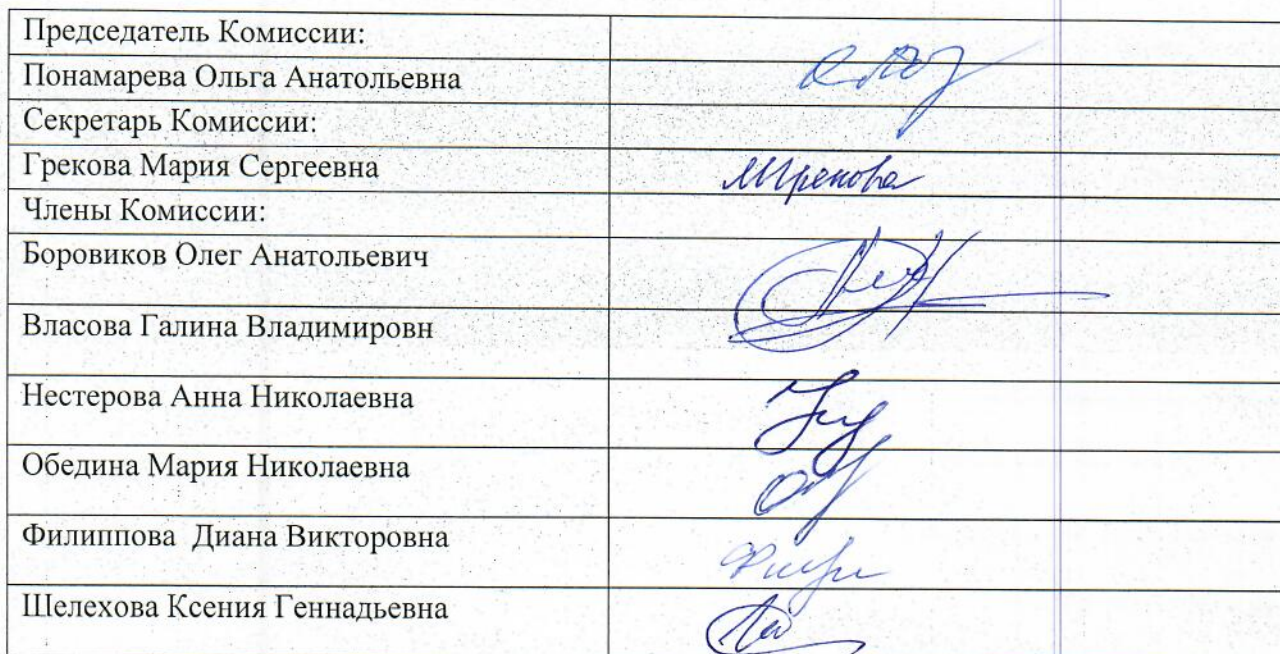 Председатель Комиссии:
Понамарева Ольга Анатольевна
Секретарь Комиссии:
Грекова Мария Сергеевна
МГрекова
Члены Комиссии:
Боровиков Олег Анатольевич
Власова Галина Владимировн
Нестерова Анна Николаевна
Обедина Мария Николаевна
Филиппова Диана Викторовна
Шелехова Ксения Геннадьевна